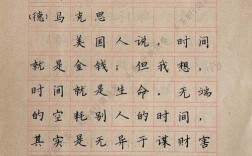 (德)马克思
美国人说，时间
就是金钱；但我想，
时间就是生命。无端
的空耗别人的时间，
其实是无异于谋财害